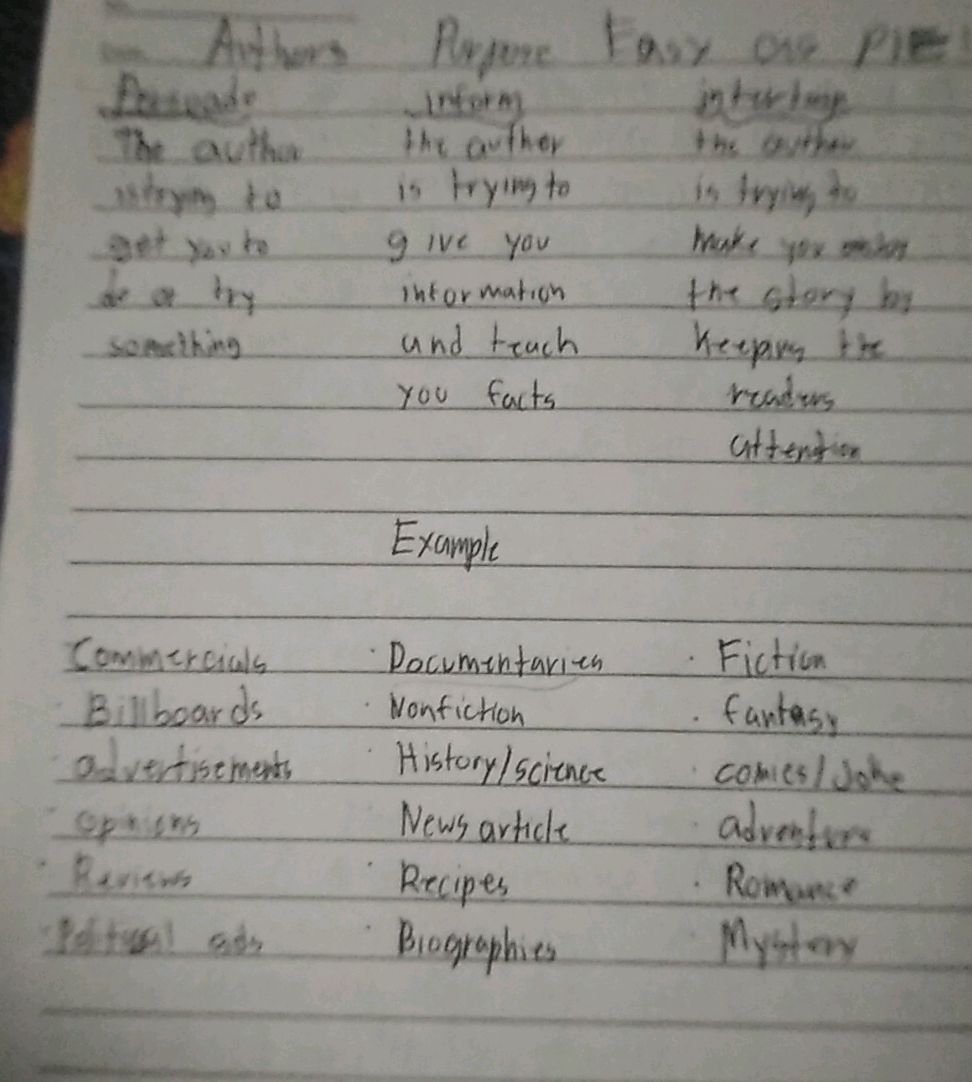 Authors Purpose Easy as PIE!
Persuade inform
The author the author the author
is trying to is trying to is trying to
get you to give you make you
do or try information the story by
something and teach keeping the
you facts readers
attention
Example
Commercials · Documentaries · Fiction
· Billboards · Nonfiction · fantasy
· advertisements · History/science · comics/Joke
· opinions News article · adventure
· Reviews · Recipes · Romance
· Political ads · Biographies Mystery